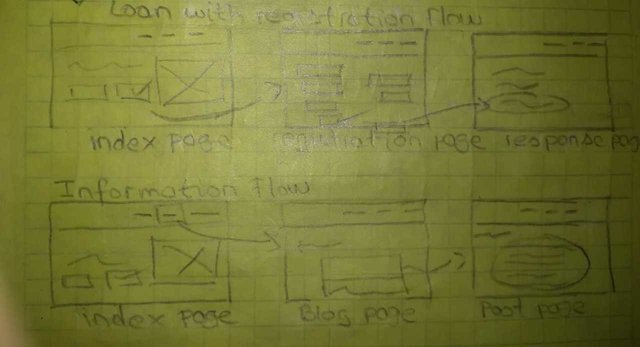 Loan with registration flow
index page registration page response page
Information flow
index page Blog page Post page